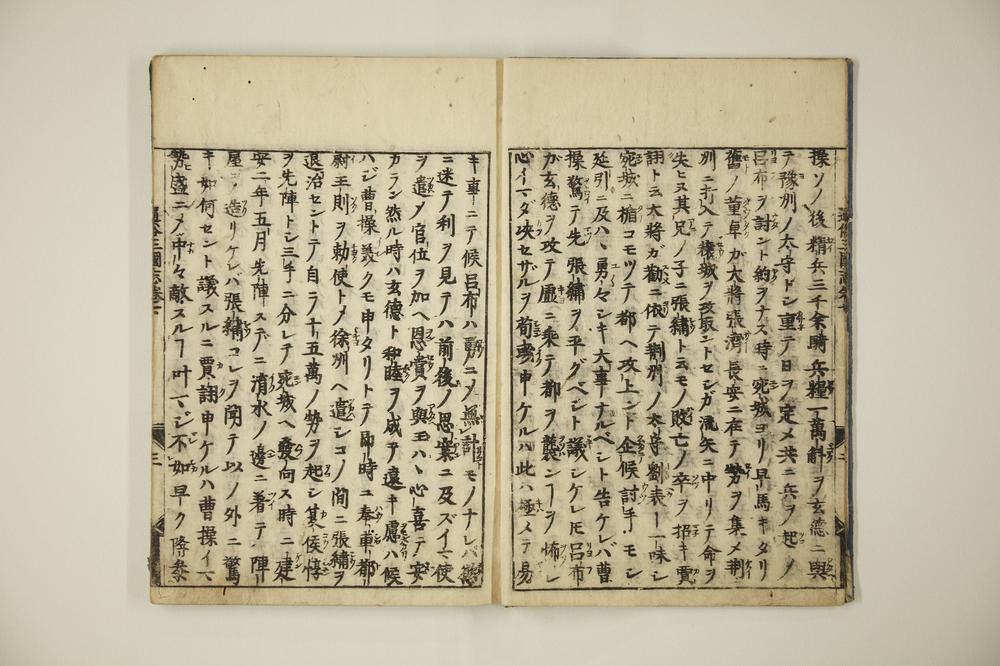 操ソノ後精兵三千余騎兵糧一萬斛ヲ玄德ニ與
テ豫州ノ太守トシ重テ日ヲ定メ共ニ兵ヲ起メ
呂布ヲ討ント約ヲナス時ニ宛城ヨリ早馬キタリ
舊ノ董卓ガ大將張濟長安ニ在テ勢ヲ集メ荆
州ニ打入テ穰城ヲ攻取ントセシガ流矢ニ中リテ命ヲ
失ヒ又其兄ノ子ニ張繡ト云モノ敗亡ノ卒ヲ招キ賈
詡ト云大將ガ勸ニ依テ荆州ノ太守劉表ト一味シ
宛城ニ楯コモツテ都ヘ攻上ント企候討手ノモシ
延引ニ及ハヽ勇々シキ大事ナルベシト告ケレバ曹
操驚テ先張繡ヲ平グベシト議シケレ𪜈呂布
ガ玄德ヲ攻テ虛ニ乘テ都ヲ襲ンヿヲ怖レ
心イマダ决セザルヲ荀彧申ケルハ此ハ極メテ易
キ事ニテ候呂布ハ勇ニメ無計モノナレバ慾
ニ迷テ利ヲ見テハ前後ノ思案ニ及ズイマ使
ヲ遣メ官位ヲ加ヘ恩賞ヲ與玉ハヽ心喜テ安
カラン然ル時ハ玄德ト和睦ヲ成テ遠キ慮ハ候
ハジ曹操義クモ申タリトテ即時ニ奉車都
尉王則ヲ勅使トメ徐州ヘ遣シコノ間ニ張繡ヲ
退治セントテ自ラ十五萬ノ勢ヲ起シ夏侯惇
ヲ先陣トシ三手ニ分レテ宛城ヘ發向ス時ニ建
安二年五月先陣ステニ淯水ノ邊ニ着テ陣
屋ヲ造リケレバ張繡コレヲ聞テ以ノ外ニ驚
キ如何セント議スルニ賈詡申ケルハ曹操イマ
勢盛ニメ中々敵スルヿ叶マジ不如早ク降參